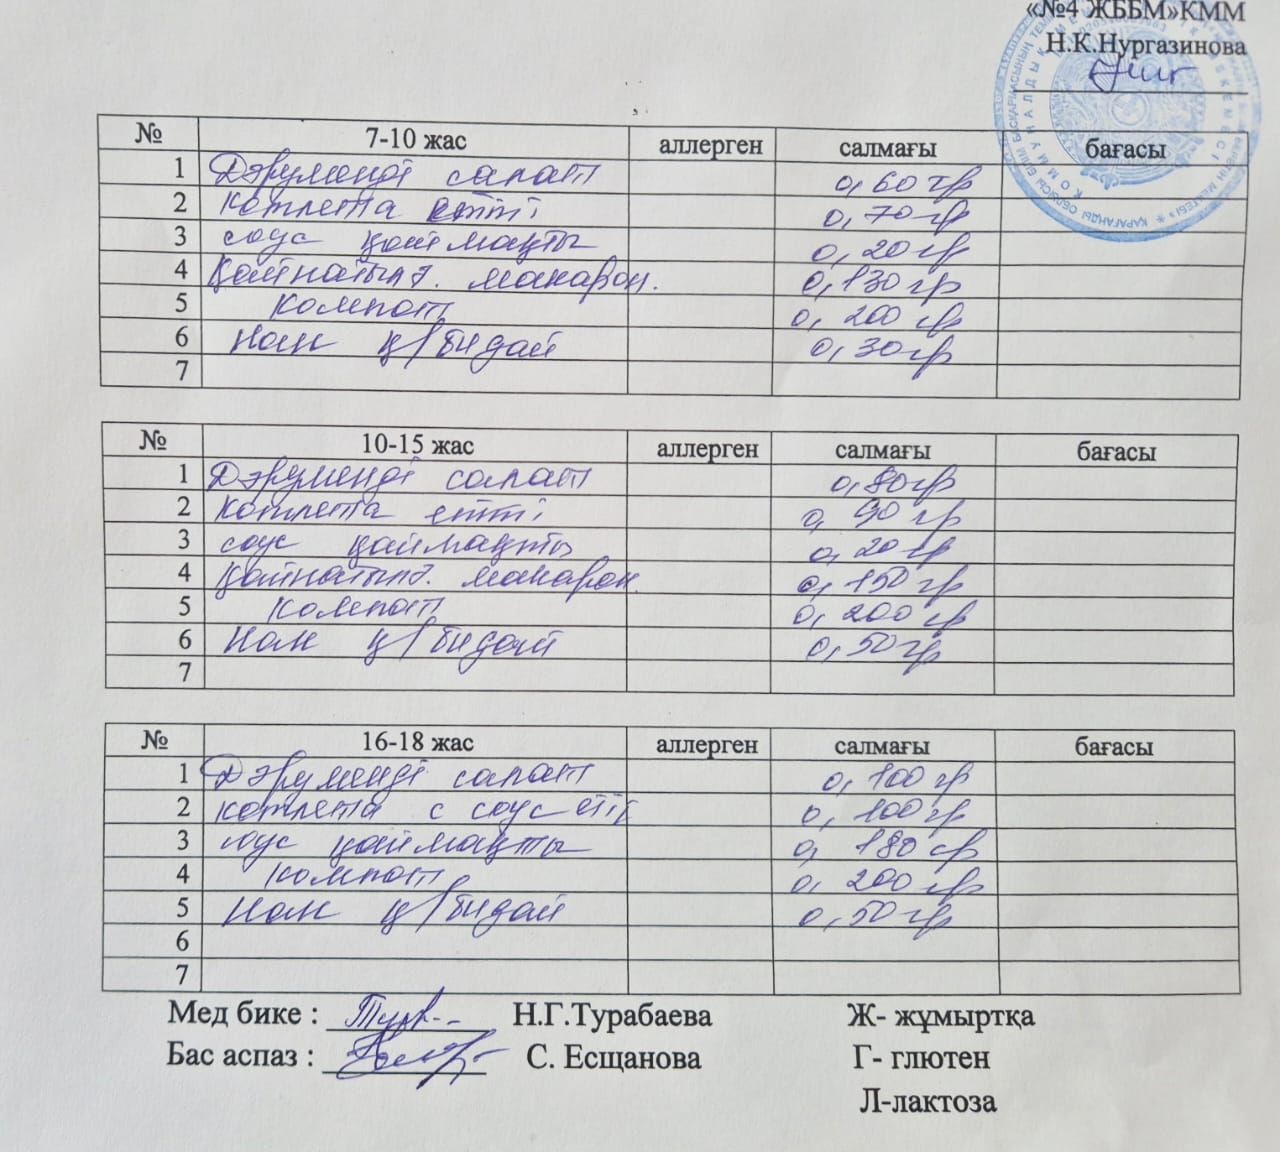 «№4 ЖББМ»КММ
Н.К.Нургазинова
№ 7-10 жас аллерген салмағы бағасы
1 Дәруменді салат 0,60 гр
2 котлета етті 0,70 гр
3 соус қаймақты 0,20 гр
4 Қайнатылғ. макарон. 0,130 гр
5 Компот 0,200 гр
6 Нан қ/бидай 0,30 гр
7
№ 10-15 жас аллерген салмағы бағасы
1 Дәруменді салат 0,80 гр
2 котлета етті 0,90 гр
3 соус қаймақты 0,20 гр
4 Қайнатылғ. макарон 0,150 гр
5 Компот 0,200 гр
6 Нан қ/бидай 0,50 гр
7
№ 16-18 жас аллерген салмағы бағасы
1 Дәруменді салат 0,100 гр
2 котлета с соус етті 0,100 гр
3 соус қаймақты 0,180 гр
4 Компот 0,200 гр
5 Нан қ/бидай 0,50 гр
6
7
Мед бике : Н.Г.Турабаева Ж- жұмыртқа
Бас аспаз : С. Есщанова Г- глютен
Л-лактоза